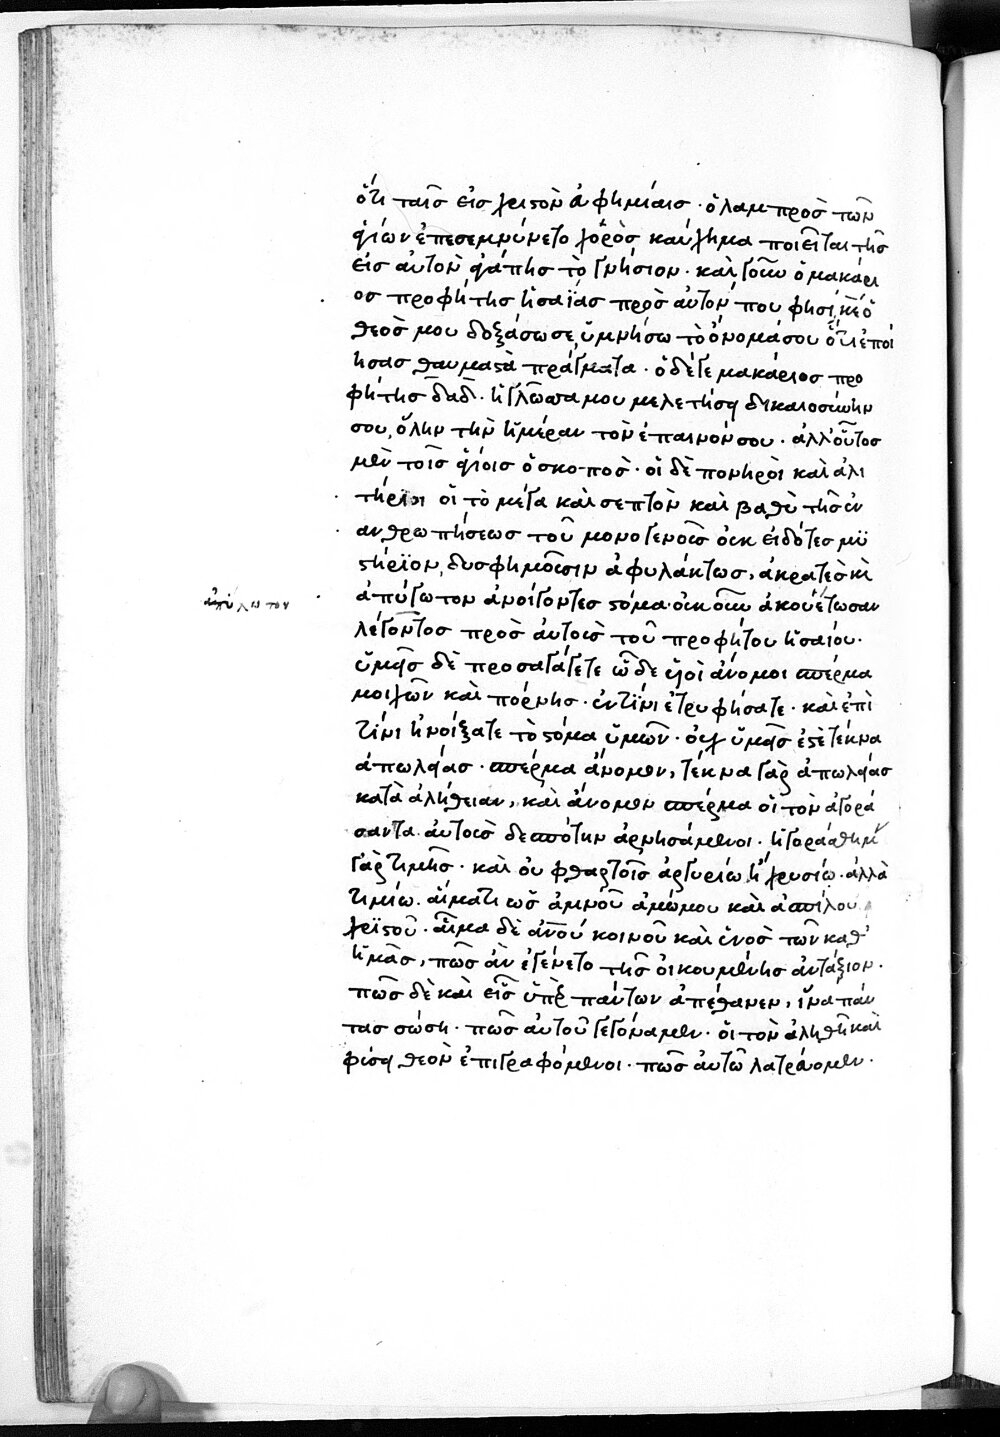 ὅτι ταῖσ εἰσ χριστὸν ἐυφημίαισ · ὁ λαμπρὸσ τῶν
ἁγίων ἐπεσεμνύνετο χορὸσ καύχημα ποιεῖται τῆσ
εἰσ αὐτὸν ἀγάπησ τὸ γνήσιον · καὶ γοῦν ὁ μακάρι
οσ προφήτησ ἡσαΐασ πρὸσ αὐτόν που φησί, κε ὁ
θεόσ μου δοξάσω σε, ὑμνήσω τὸ ὄνομά σου ὅτι ἐποί
ησασ θαυμαστὰ πράγματα · ὁ δέ γε μακάριοσ προ
φήτησ δαδ · ἡ γλῶσσα μου μελετήσει δικαιοσύνην
σου, ὅλην τὴν ἡμέραν τὸν ἔπαινόν σου · ἀλλ' οὗτοσ
μὲν τοῖσ ἁγίοισ ὁ σκοποσ · οἱ δὲ πονηροὶ καὶ ἀλι
τήριοι οἱ τὸ μέγα καὶ σεπτὸν καὶ βαθὺ τῆσ ἐν
ανθρωπήσεωσ τοῦ μονογενοῦσ οὐκ εἰδότεσ μυ
στήριον, δυσφημοῦσιν ἀφυλάκτωσ, ἀκρατὲσ κ
ἀπύλωτον ἀνοίγοντεσ στόμα · οὐκοῦν ἀκουέτωσαν
ἀπύλωτον
λέγοντοσ πρὸσ αὐτοὺσ τοῦ προφήτου ἡσαίου ·
ὑμεῖσ δὲ προσαγάγετε ὧδε υἱοὶ ἄνομοι σπέρμα
μοιχῶν καὶ πόρνησ · ἐν τίνι ἐτρυφήσατε · καὶ ἐπὶ
τίνι ἠνοίξατε τὸ στόμα ὑμῶν · οὐχ ὑμεῖσ ἐστὲ τέκνα
ἀπωλείασ · σπέρμα ἄνομον, τέκνα γὰρ ἀπωλείασ
κατὰ ἀλήθειαν, καὶ ἄνομον σπέρμα οἱ τὸν ἀγορά
σαντα αὐτοὺσ δεσπότην ἀρνησάμενοι · ἠγοράσθημεν
γὰρ τιμῆσ · καὶ οὐ φθαρτοῖσ ἀργυρίω ἢ χρυσίω · ἀλλὰ
τιμίω αἵματι ὡσ ἀμνοῦ ἀμώμου καὶ ἀσπίλου
χριστοῦ · αἷμα δὲ ἀνου κοινοῦ καὶ ἑνὸσ τῶν καθ'
ἡμᾶσ, πῶσ ἂν ἐγένετο τῆσ οἰκουμένησ ἀντάξιον ·
πῶσ δὲ καὶ εἷσ ὑπὲρ πάντων ἀπέθανεν, ἵνα πάν
τασ σώση · πῶσ αὐτοῦ γεγόναμεν · οἱ τὸν ἀληθῆ καὶ
φύσει θεὸν ἐπιγραφόμενοι · πῶσ αὐτῶ λατρεύομεν ·